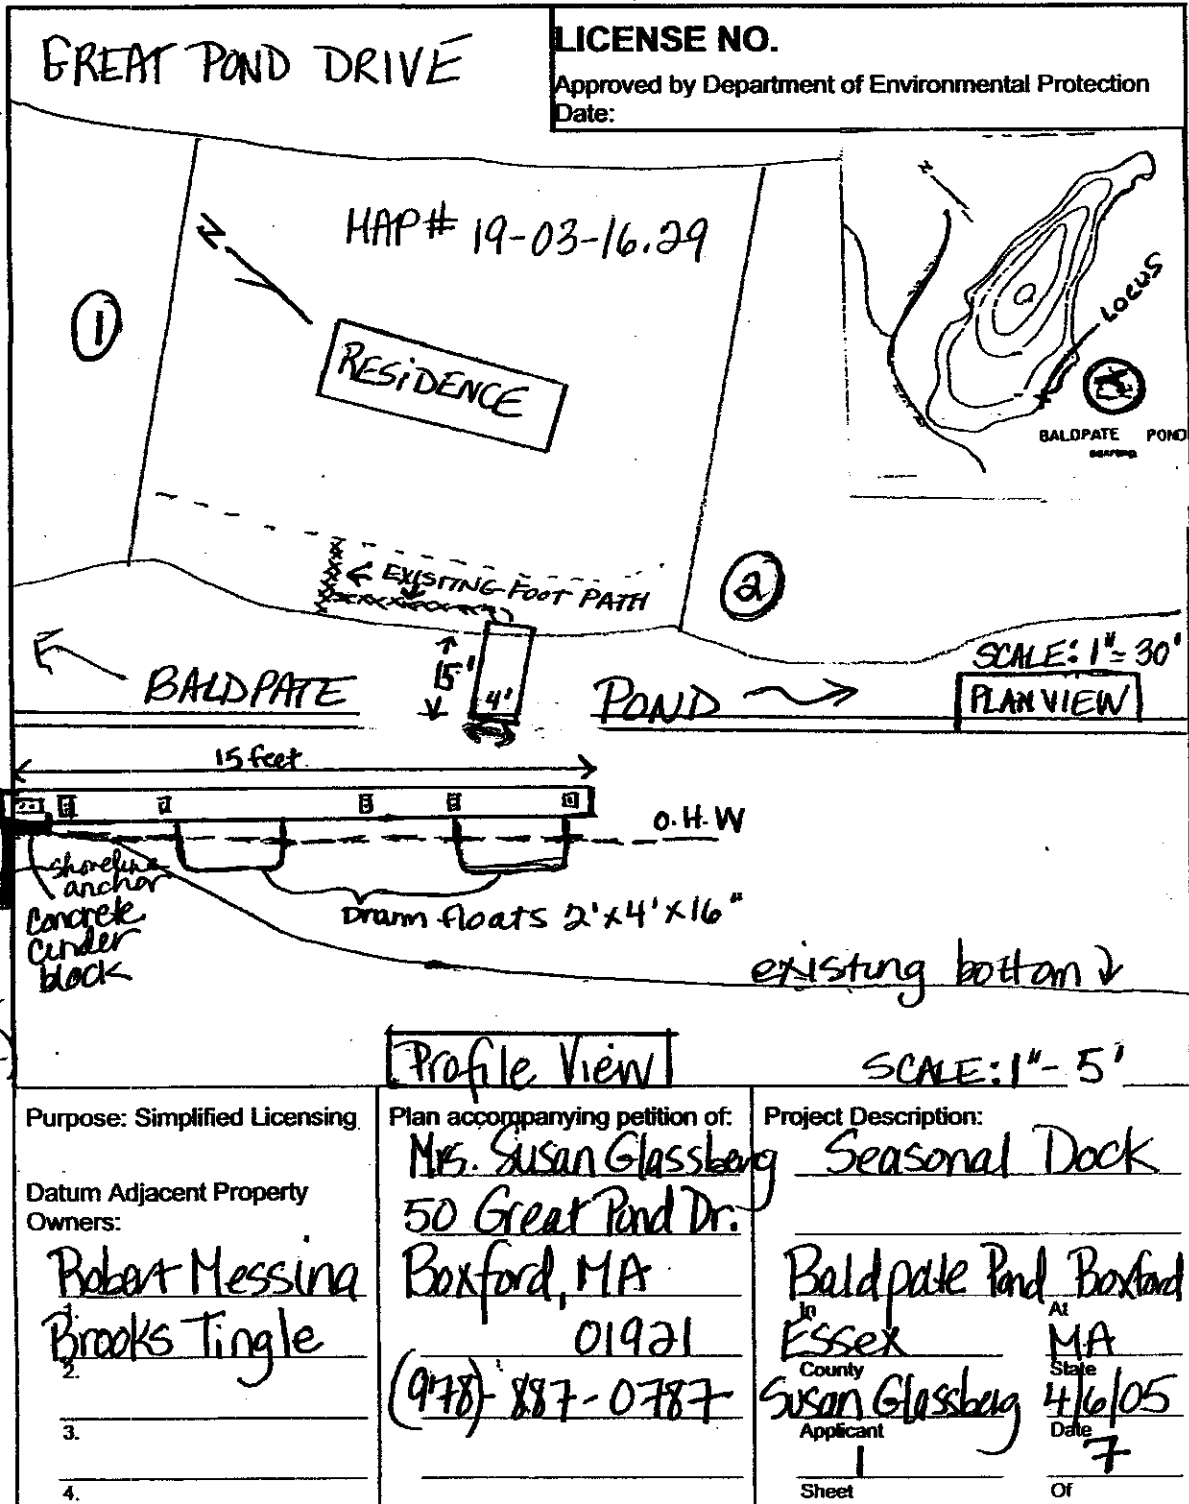 GREAT POND DRIVE
LICENSE NO.
Approved by Department of Environmental Protection
Date:
MAP# 19-03-16.29
N
N
1
RESIDENCE
LOCUS
BALDPATE POND
EXISTING FOOT PATH
2
15'
4'
BALDPATE POND
SCALE: 1"=30'
PLAN VIEW
15 feet
O.H.W
shoreline
anchor
Concrete
cinder
block
Drum floats 2'x4'x16"
existing bottom
Profile View
SCALE: 1"- 5'
Purpose: Simplified Licensing
Datum Adjacent Property
Owners:
Robert Messina
1.
Brooks Tingle
2.
3.
4.
Plan accompanying petition of:
Mrs. Susan Glassberg
50 Great Pond Dr.
Boxford, MA
01921
(978)-887-0787
Project Description:
Seasonal Dock
Baldpate Pond Boxford
In At
Essex MA
County State
Susan Glassberg 4/6/05
Applicant Date
1 7
Sheet Of